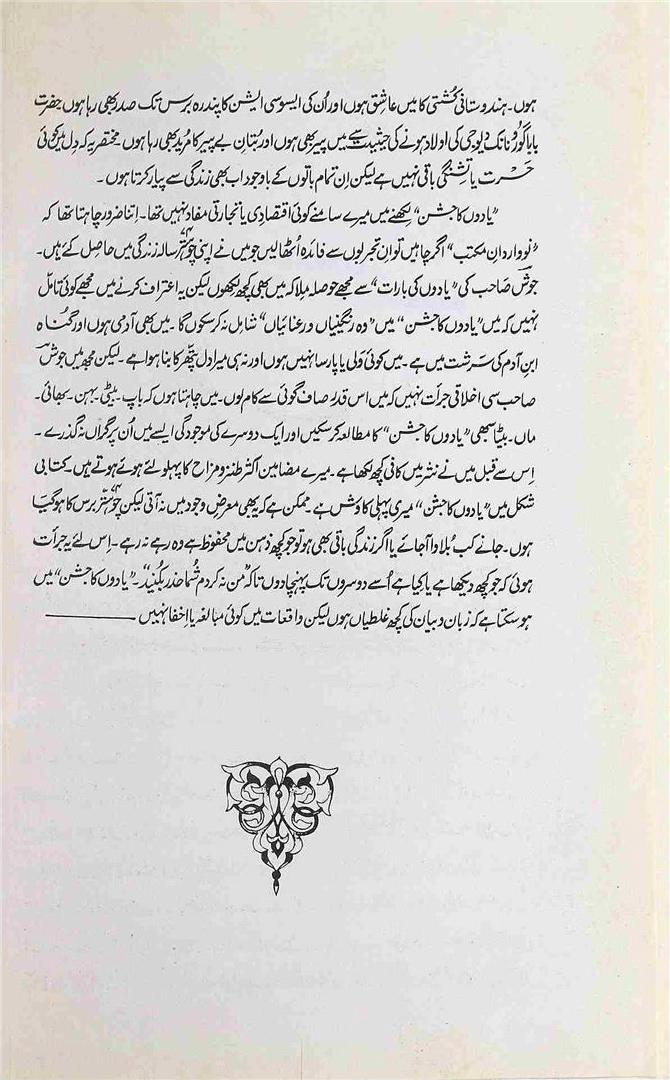 ہوں۔ ہندوستانی کُشتی کا میں عاشق ہوں اور اُن کی ایسوسی ایشن کا پندرہ برس تک صدر بھی رہا ہوں حضرت
بابا گورُو نانک دیو جی کی اولاد ہونے کی حیثیت سے میں پیر بھی ہوں اور بُتانِ بے پیر کا مُرید بھی رہا ہوں۔ مختصر یہ کہ دل میں کوئی
حسرت یا تِشنگی باقی نہیں ہے لیکن اِن تمام باتوں کے باوجود اب بھی زندگی سے پیار کرتا ہوں۔
”یادوں کا جشن“ لکھنے میں میرے سامنے کوئی اقتصادی یا تجارتی مفاد نہیں تھا۔ اِتنا ضرور چاہتا تھا کہ
”نوواردانِ مکتب“ اگر چاہیں تو ان تجربوں سے فائدہ اُٹھا لیں جو میں نے اپنی چوہتّر سالہ زندگی میں حاصل کئے ہیں۔
جوشؔ صاحب کی ”یادوں کی بارات“ سے مجھے حوصلہ مِلا کہ میں بھی کچھ لِکھوں لیکن یہ اعتراف کرنے میں مجھے کوئی تامّل
نہیں کہ میں ”یادوں کا جشن“ میں ”وہ رنگینیاں و رعنائیاں“ شامل نہ کرسکوں گا۔ میں بھی آدمی ہوں اور گُناہ
ابنِ آدم کی سَرِشت میں ہے۔ میں کوئی ولی یا پارسا نہیں ہوں اور نہ ہی میرا دل پتھّر کا بنا ہوا ہے۔ لیکن مجھ میں جوشؔ
صاحب سی اخلاقی جرأت نہیں کہ میں اس قدر صاف گوئی سے کام لوں۔ میں چاہتا ہوں کہ باپ۔ بیٹی۔ بہن۔ بھائی۔
ماں۔ بیٹا سبھی ”یادوں کا جشن“ کا مطالعہ کرسکیں اور ایک دوسرے کی موجودگی ایسے میں اُن پر گراں نہ گذرے۔
اِس سے قبل میں نے نثر میں کافی کچھ لکھا ہے۔ میرے مضامین اکثر طنز و مزاح کا پہلو لئے ہوئے ہوتے ہیں۔ کتابی
شکل میں ”یادوں کا جشن“ میری پہلی کاوش ہے۔ ممکن ہے کہ یہ بھی معرضِ وجود میں نہ آتی لیکن چوہتّر برس کا ہوگیا
ہوں۔ جانے کب بُلاوا آجائے یا اگر زندگی باقی بھی ہو تو جو کچھ ذہن میں محفوظ ہے وہ رہے نہ رہے۔ اِس لئے یہ جرأت
ہوئی کہ جو کچھ دیکھا ہے یا کیا ہے اُسے دوسروں تک پہنچا دوں تاکہ ”من نہ کردم شُما حذر بکُنید“۔ ”یادوں کا جشن“ میں
ہوسکتا ہے کہ زبان و بیان کی کچھ غلطیاں ہوں لیکن واقعات میں کوئی مبالغہ یا اِخفا نہیں ــــــــــــ